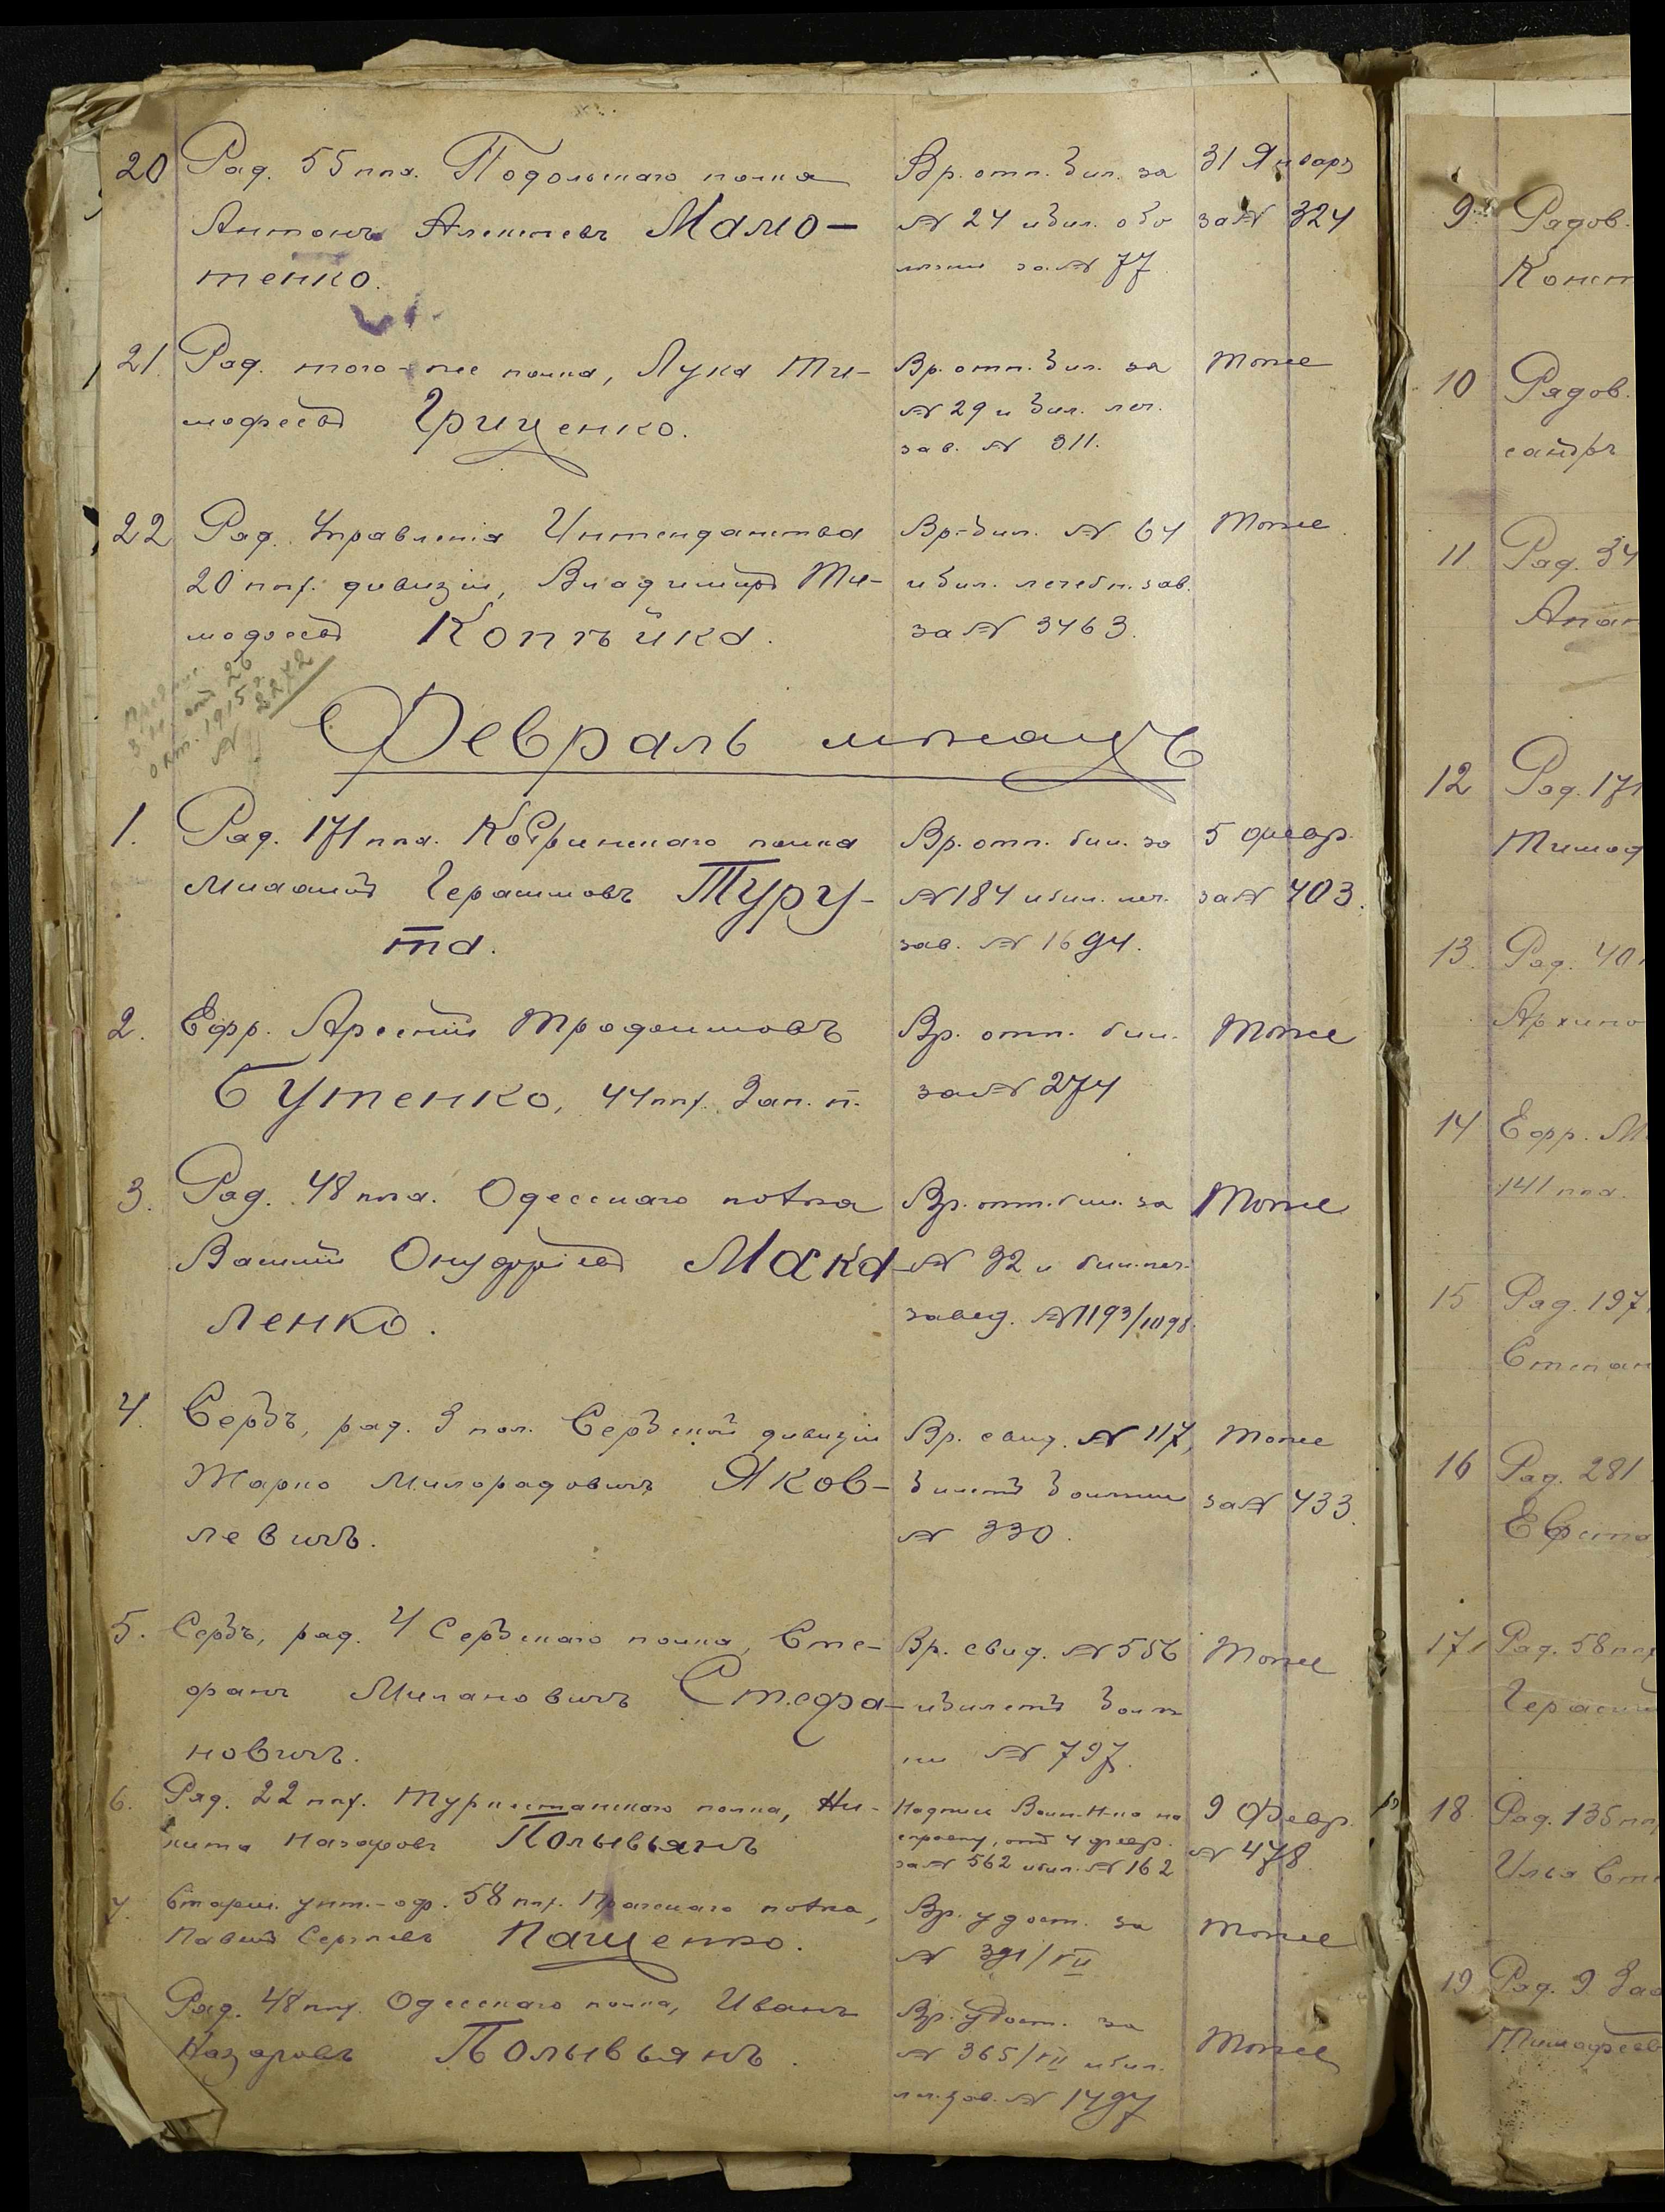 20 Ряд. 55 пѣх. Подольскаго полка
Антонъ Алексѣевъ Мамо-
тенко.
Вр. отп. бил. за
№ 24 и бил. обо
лѣзни за № 77
31 Января
за № 324
21. Ряд. того-же полка, Лука Ти-
мофеевъ Гриценко.
Вр. отп. бил. за
№ 29 и бил. леч.
зав. № 311.
Тоже
22 Ряд. Управленія Интендантства
20 пѣх. дивизіи, Владиміръ Ти-
мофеевъ Копѣйка.
Вр. бил. № 64
и бил. лечебн. зав.
за № 3463.
Тоже
от 26
окт. 1915 г.
№ 2272
Февраль мѣсяцъ
1. Ряд. 171 пѣх. Кобринскаго полка
Михаилъ Герасимовъ Туру-
та.
Вр. отп. бил. за
№ 184 и бил. леч.
зав. № 1694.
5 февр.
за № 403.
2. Ефр. Арсеній Трофимовъ
Бутенко, 44 пѣх. Зап. п.
Вр. отп. бил.
за № 274
Тоже
3. Ряд. 48 пѣх. Одесскаго полка
Василій Онуфріевъ Мака
ленко.
Вр. отп. бил. за
№ 32 и бил. леч.
завед. № 1193/1098.
Тоже
4. Сербъ, ряд. 3 пол. Сербской дивизіи
Жарко Милорадовичъ Яков-
левичъ.
Вр. свид. № 117,
билетъ больницы
№ 330.
Тоже
за № 433.
5. Сербъ, ряд. 4 Сербскаго полка, Сте-
фанъ Милановичъ Стефа-
новичъ.
Вр. свид. № 556
и билетъ больн
цы № 797.
Тоже
6. Ряд. 22 пѣх. Туркестанскаго полка, Ни-
кита Назаровъ Полывьянъ
Надпись Воин. Н-ка на
справку, отъ 4 февр.
за № 562 и бил. № 162
9 Февр.
№ 478.
7. Старш. унт.-оф. 58 пѣх. Прагскаго полка,
Павелъ Сергѣевъ Пащенко.
Вр. удост. за
№ 391/VII
Тоже
Ряд. 48 пѣх. Одесскаго полка, Иванъ
Назаровъ Полывьянъ.
Вр. удост. за
№ 365/VII и бил.
леч. зав. № 1497
Тоже
9. Рядов.
Конст
10 Рядов.
11. Ряд. 34
Апан
12 Ряд. 171
Тимоф
13. Ряд. 40
Архипо
14 Ефр. М
141 пѣх.
15 Ряд. 197
Степан
16 Ряд. 281
Евста
17 Ряд. 58 пѣх
Герасим
18. Ряд. 135 пѣх
Илья Сте
19 Ряд. 9 За
Тимофеев